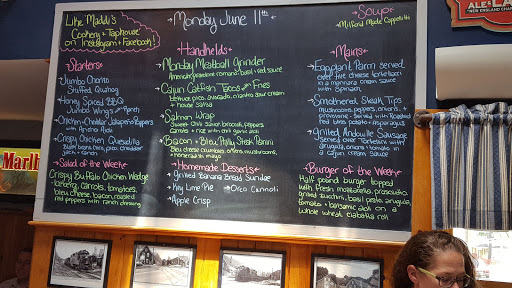 Like Maddi's
Cookery + Taphouse
on Instagram + Facebook!
Monday June 11th
Soup
Milford Made Cappelletti
ALE &
NEW ENGLAND
Starters
→ Jumbo Chorizo
Stuffed Quahog
→ Honey Spiced BBQ
Jumbo Wings + Ranch
→ Chorizo + Cheddar Jalapeño Poppers
with Ranch
→ Chicken Quesadilla
Black beans, corn, pico, cheddar
Salad of the Week
Crispy Buffalo Chicken Wedge
Iceberg, carrots, tomatoes,
bleu cheese, bacon, roasted
red peppers with ranch dressing
Handhelds
→ Monday Meatball Grinder
American, provolone, romano, basil, red sauce
→ Cajun Catfish Tacos and Fries
Lettuce, pico, avocado, cilantro sour cream
+ house salsa
→ Salmon Wrap
Sweet chili salmon, broccoli, peppers,
carrots + rice with chili garlic aioli
→ Bacon + Bleu Philly Steak Panini
Bleu cheese crumbles, onions, mushrooms,
+ homemade mayo
Homemade Desserts
→ Grilled Banana Bread Sundae
→ Key Lime Pie
→ Oreo Cannoli
→ Apple Crisp
Mains
→ Eggplant Parm served
over five cheese tortellacci
in a marinara cream sauce
with Spinach
→ Smothered Steak Tips
mushrooms, peppers, onions, +
provolone - served with Roasted
red bliss potato + asparagus
→ Grilled Andouille Sausage
served over Tortellini with
arugula, onions + tomato in
a cajun cream sauce
Burger of the Week
Half pound burger topped
with fresh mozzarella, prosciutto,
grilled zucchini, basil pesto, arugula,
tomato + balsamic aioli on a
whole wheat ciabatta roll
Marlb